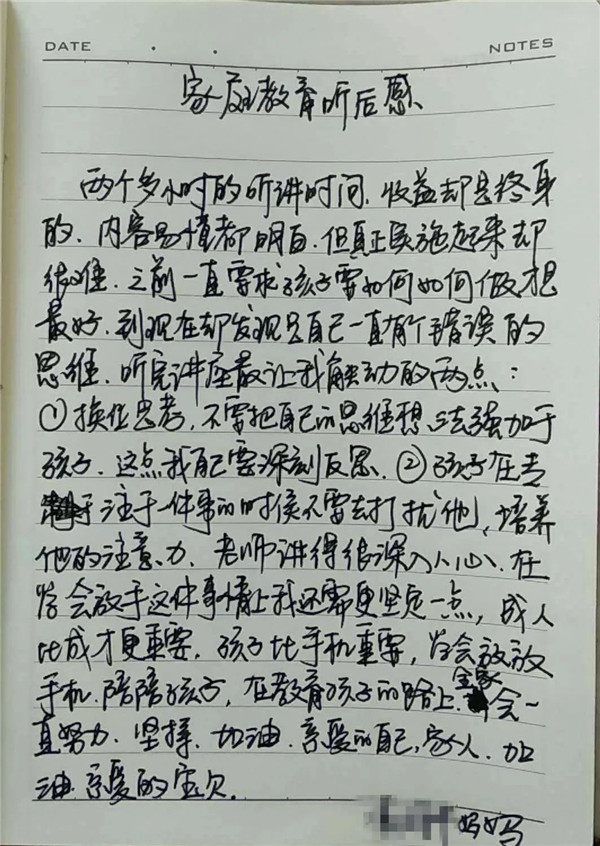 DATE NOTES
家庭教育听后感
两个多小时的听讲时间、收益却是终身
的、内容易懂都明白、但真正实施起来却
很难、之前一直要求孩子要如何如何做才想
最好、到现在却发现是自己一直有个错误的
思维、听完讲座最让我触动的两点：
①换位思考，不要把自己的思维想法强加于
孩子、这点我自己要深刻反思、②孩子在专
注于一件事的时候不要去打扰他、培养
他的注意力、老师讲得很深入人心、在
学会放手这件事情上我还需更坚定一点，成人
比成才更重要，孩子比手机重要，学会放放
手机、陪陪孩子，在教育孩子的路上、全家会一
直努力、坚持、加油、亲爱的自己，家人、加
油、亲爱的宝贝.
妈妈